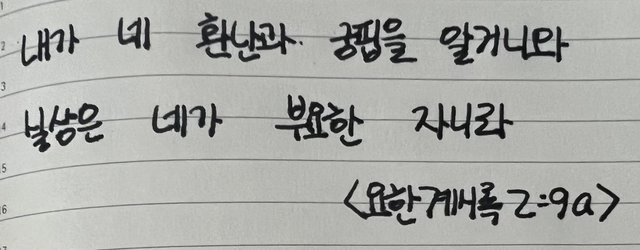 내가 네 환난과 궁핍을 알거니와
실상은 네가 부요한 자니라
<요한계시록 2:9a>